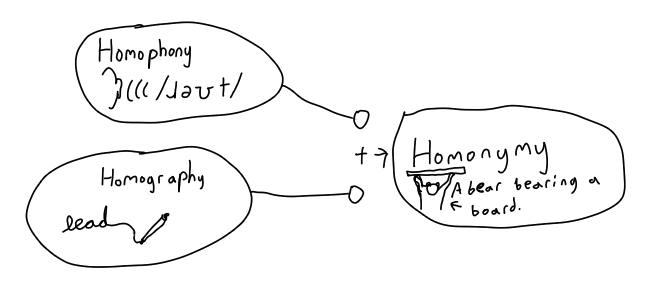 Homophony
/ɹəʊt/
Homography
lead
+ → Homonymy
A bear bearing a
← board.